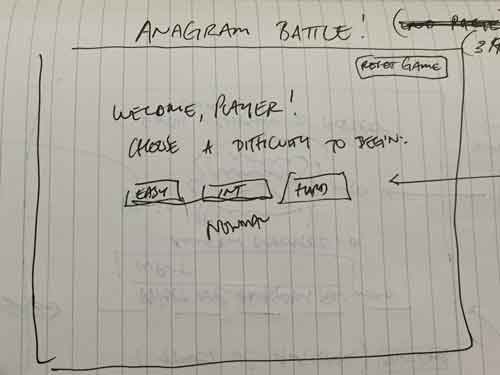 ANAGRAM BATTLE!
(3
RESET GAME
WELCOME, PLAYER!
CHOOSE A DIFFICULTY TO BEGIN:
EASY INT HARD
NORMAL